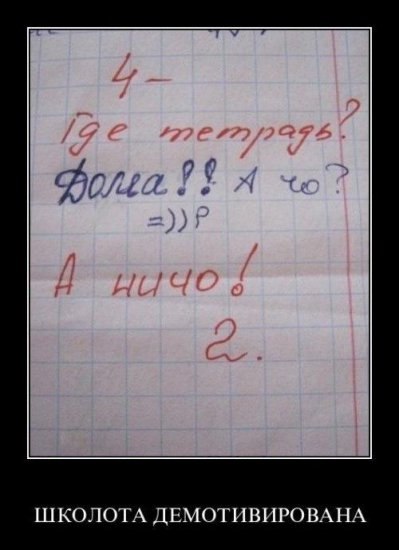 4-
Где тетрадь?
Дома!! А чо?
=))Р
А ничо!
2.
ШКОЛОТА ДЕМОТИВИРОВАНА